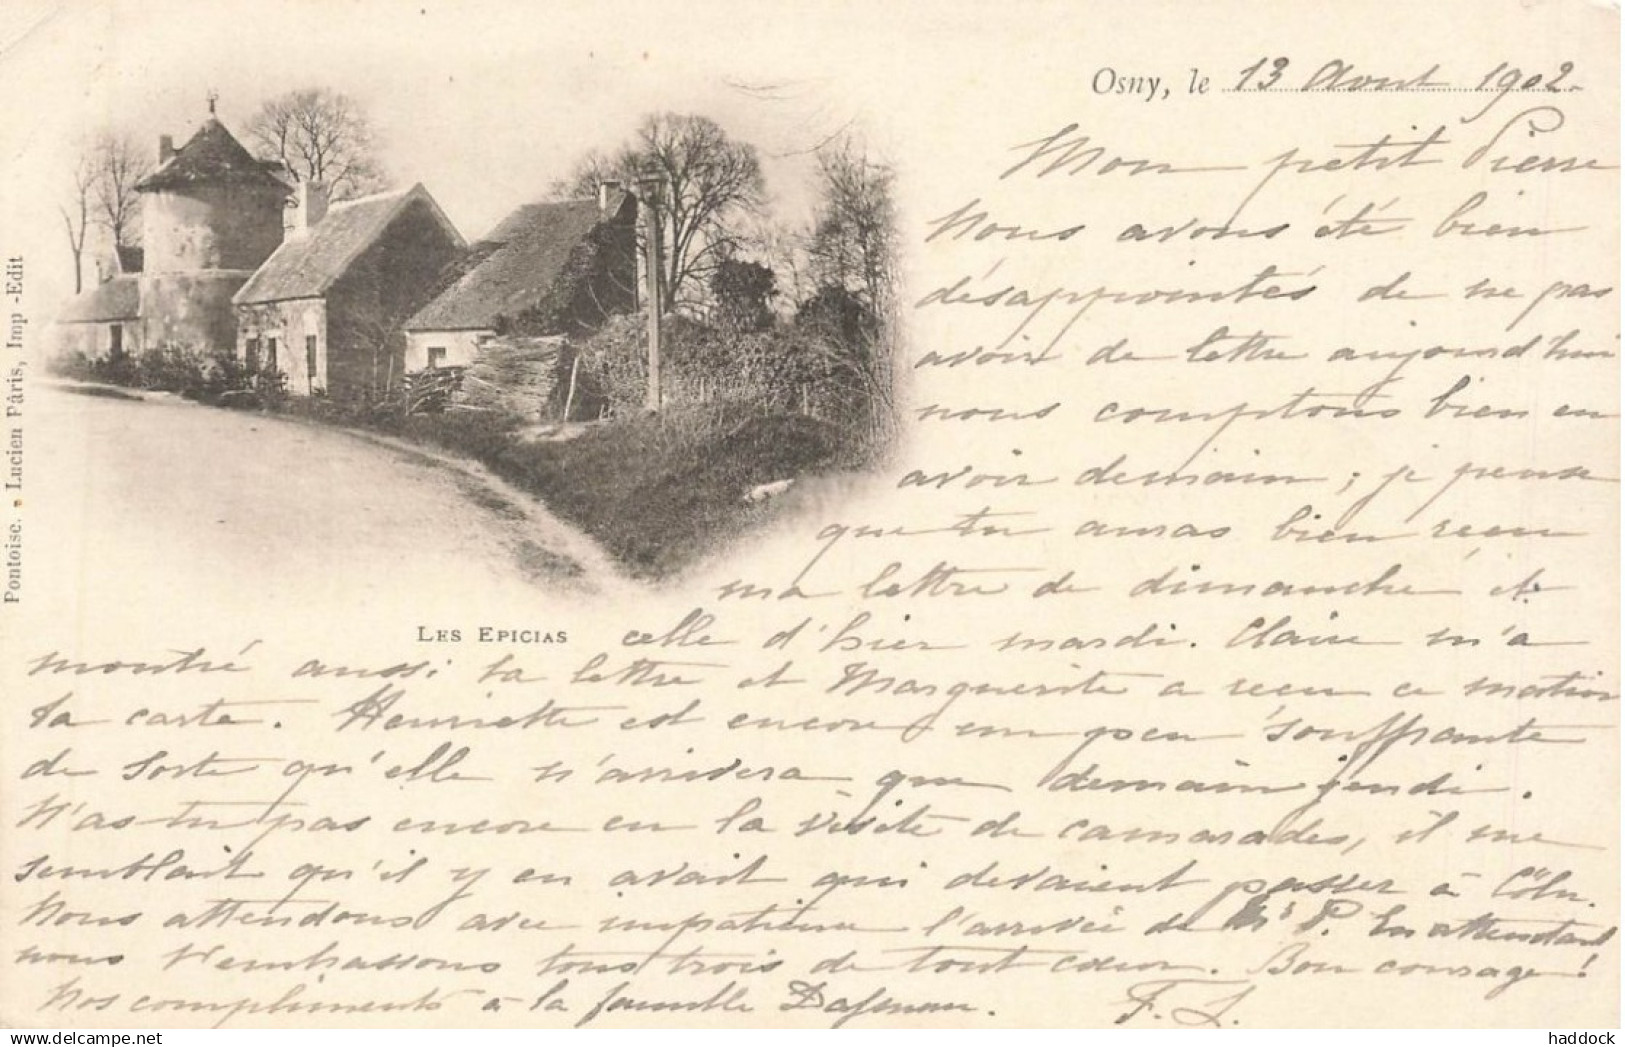 Osny, le 13 Aout 1902.
Mon petit Pierre
Nous avons été bien
désappointés de ne pas
avoir de lettre aujourd'hui
nous comptons bien en
avoir demain ; je pense
que tu auras bien recu
ma lettre de dimanche et
LES EPICIAS
celle d'hier mardi. Claire m'a
montré aussi ta lettre et Marguerite a recu ce matin
ta carte. Henriette est encore un peu souffrante
de sorte qu'elle n'arrivera que demain jeudi.
N'as-tu pas encore eu la visite de camarades, il me
semblait qu'il y en avait qui devaient passer à Cöln.
Nous attendons avec impatience l'arrivée de Mr P. En attendant
nous t'embrassons tous trois de tout cœur. Bon courage !
Nos compliments à la famille
F. L.
Pontoise. - Lucien Pâris, Imp-Edit
haddock